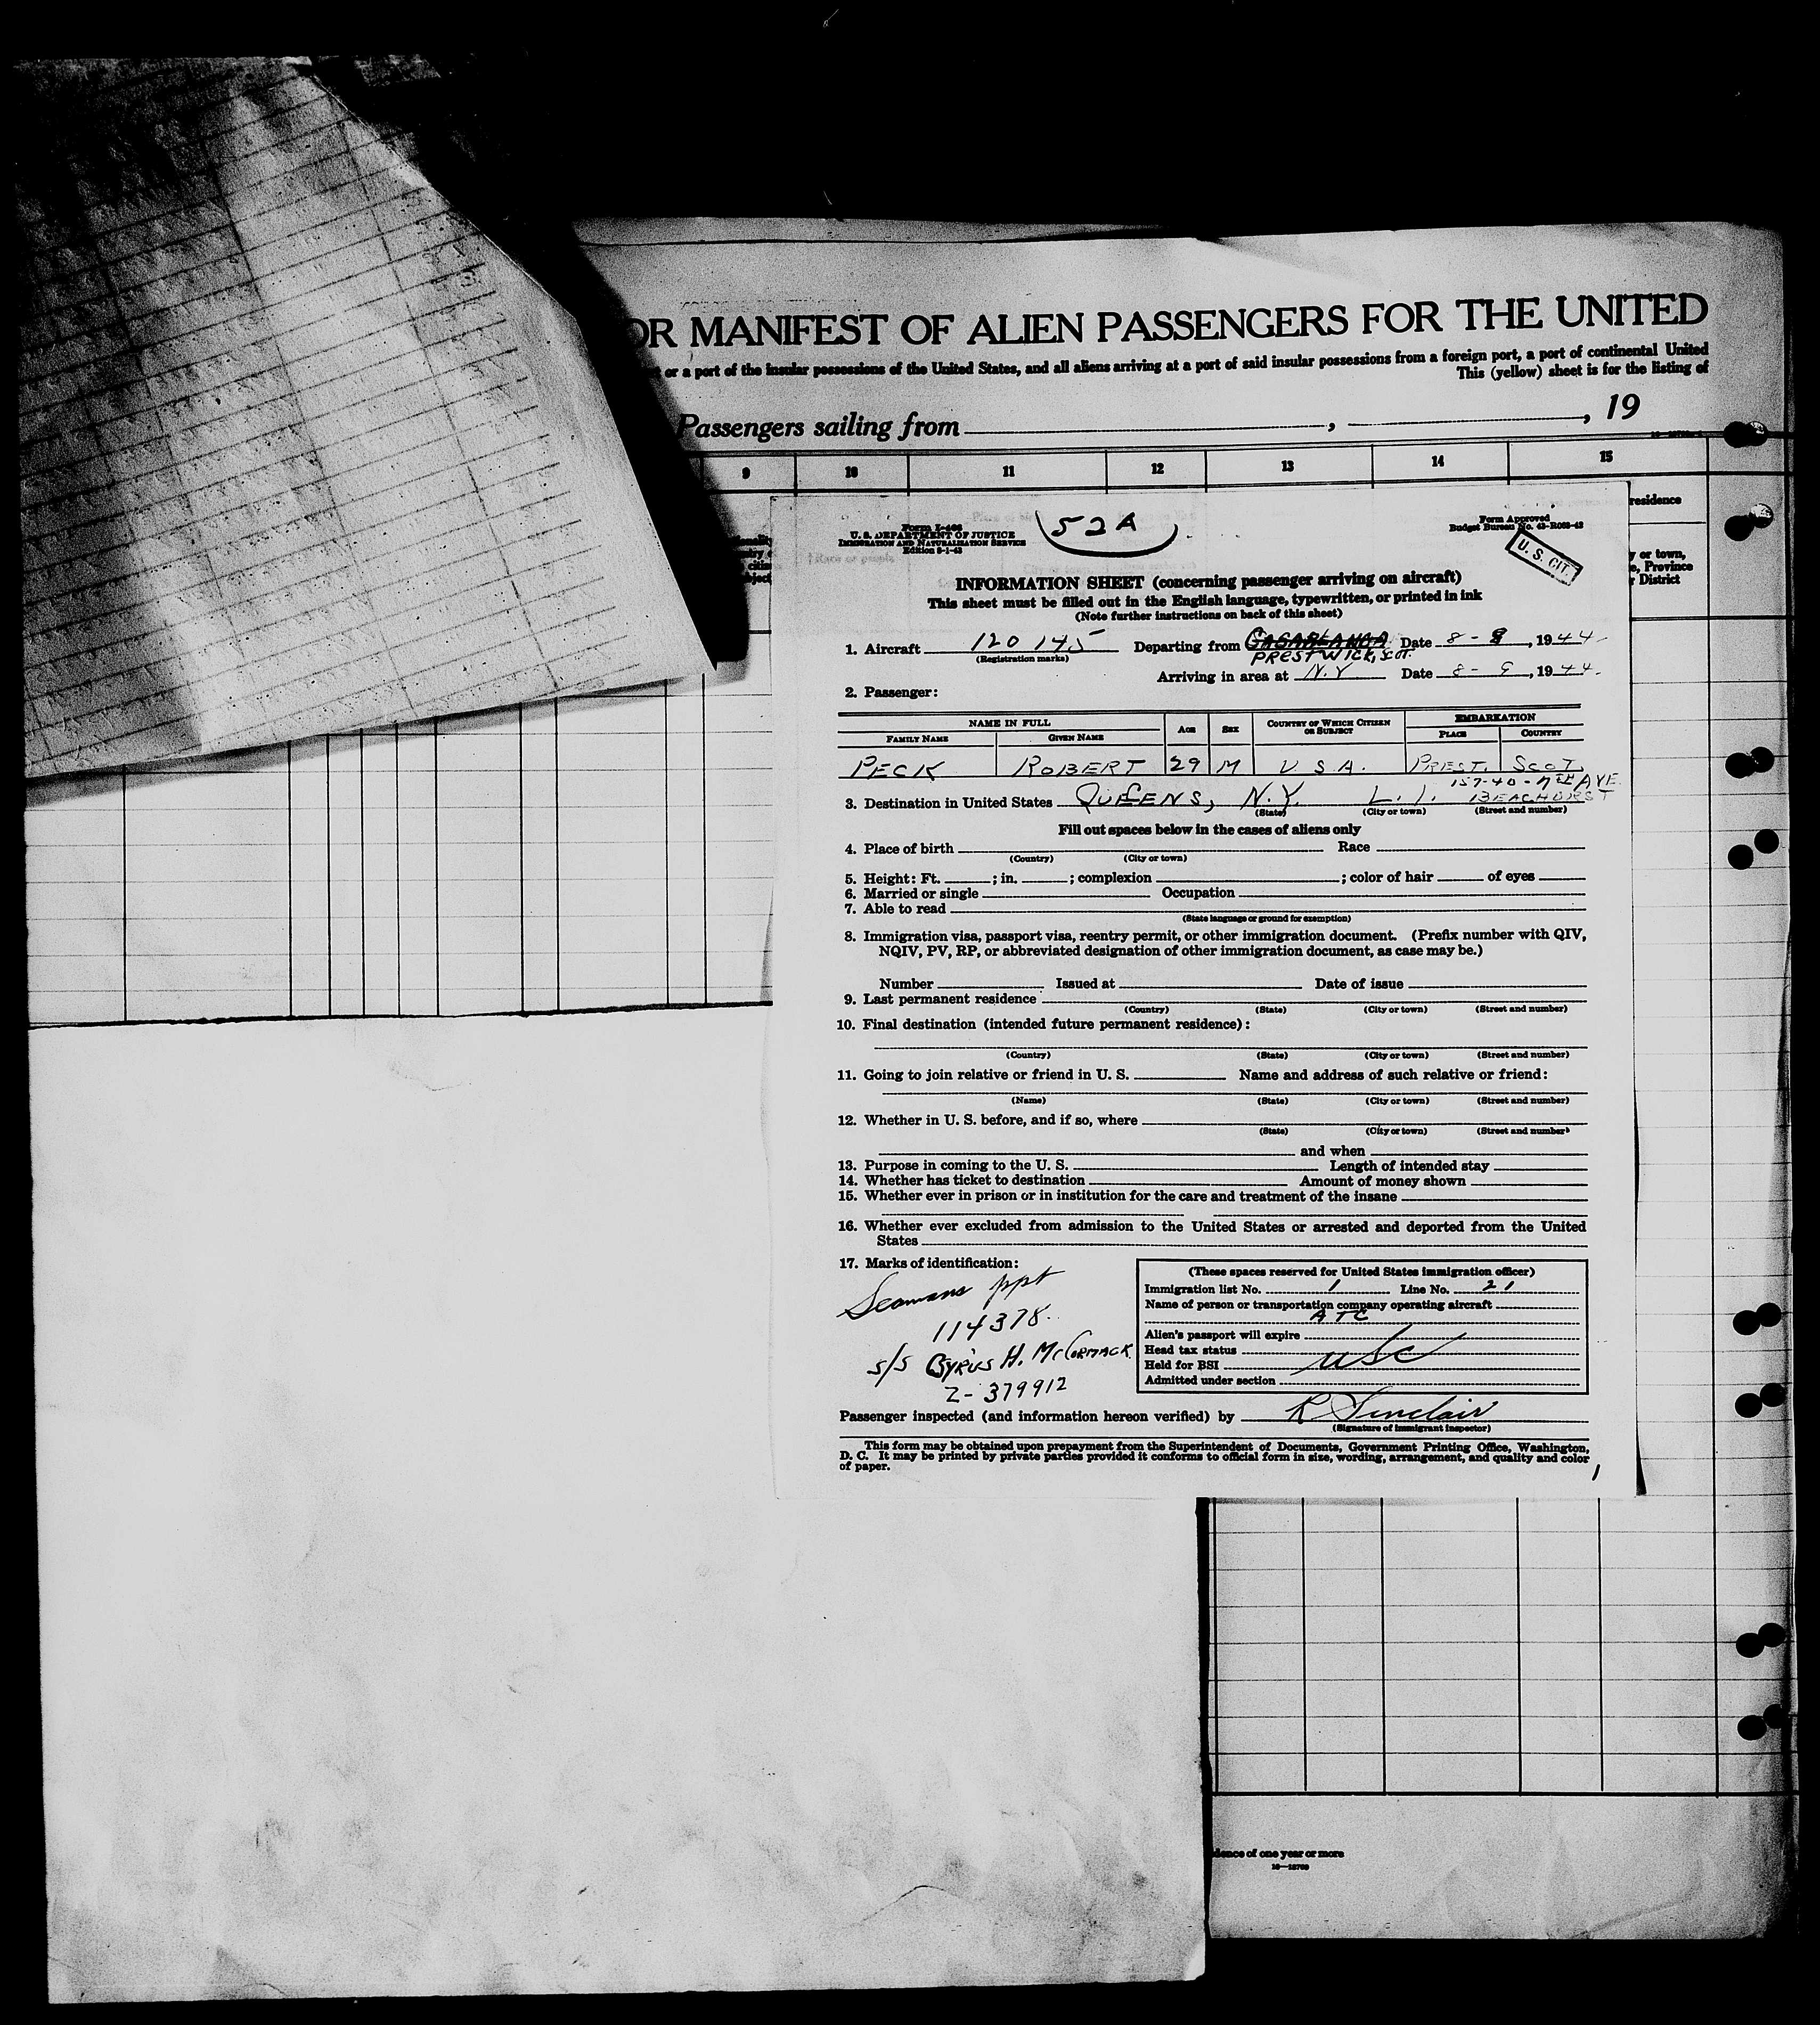 OR MANIFEST OF ALIEN PASSENGERS FOR THE UNITED
or a port of the insular possessions of the United States, and all aliens arriving at a port of said insular possessions from a foreign port, a port of continental United
This (yellow) sheet is for the listing of
Passengers sailing from , , 19
9 10 11 12 13 14 15
residence
y or town,
e, Province
r District
Form I-466
U. S. DEPARTMENT OF JUSTICE
IMMIGRATION AND NATURALIZATION SERVICE
Edition 8-1-43
52A
Form Approved
Budget Bureau No. 43-R083-42
U. S. CIT.
INFORMATION SHEET (concerning passenger arriving on aircraft)
This sheet must be filled out in the English language, typewritten, or printed in ink
(Note further instructions on back of this sheet)
1. Aircraft 120145 Departing from CASABLANCA Date 8-8, 1944
(Registration marks) PRESTWICK, SCOT.
Arriving in area at N.Y Date 8-9, 1944.
2. Passenger:
NAME IN FULL AGE SEX COUNTRY OF WHICH CITIZEN OR SUBJECT EMBARKATION
FAMILY NAME GIVEN NAME PLACE COUNTRY
PECK ROBERT 29 M U S A. PREST. SCOT.
157-40-7TH AVE
3. Destination in United States QUEENS, N.Y. L.I. BEACHURST
(State) (City or town) (Street and number)
Fill out spaces below in the cases of aliens only
4. Place of birth Race
(Country) (City or town)
5. Height: Ft. ; in. ; complexion ; color of hair of eyes
6. Married or single Occupation
7. Able to read
(State language or ground for exemption)
8. Immigration visa, passport visa, reentry permit, or other immigration document. (Prefix number with QIV,
NQIV, PV, RP, or abbreviated designation of other immigration document, as case may be.)
Number Issued at Date of issue
9. Last permanent residence
(Country) (State) (City or town) (Street and number)
10. Final destination (intended future permanent residence):
(Country) (State) (City or town) (Street and number)
11. Going to join relative or friend in U. S. Name and address of such relative or friend:
(Name) (State) (City or town) (Street and number)
12. Whether in U. S. before, and if so, where
(State) (City or town) (Street and number)
and when
13. Purpose in coming to the U. S. Length of intended stay
14. Whether has ticket to destination Amount of money shown
15. Whether ever in prison or in institution for the care and treatment of the insane
16. Whether ever excluded from admission to the United States or arrested and deported from the United
States
17. Marks of identification:
Seamans ppt
114378.
S/S Cyrus H. McCormack
Z-379912
(These spaces reserved for United States immigration officer)
Immigration list No. 1 Line No. 21
Name of person or transportation company operating aircraft
ATC
Alien's passport will expire
Head tax status
Held for BSI USC
Admitted under section
Passenger inspected (and information hereon verified) by R Sinclair
(Signature of immigrant inspector)
This form may be obtained upon prepayment from the Superintendent of Documents, Government Printing Office, Washington,
D. C. It may be printed by private parties provided it conforms to official form in size, wording, arrangement, and quality and color
of paper.
dence of one year or more